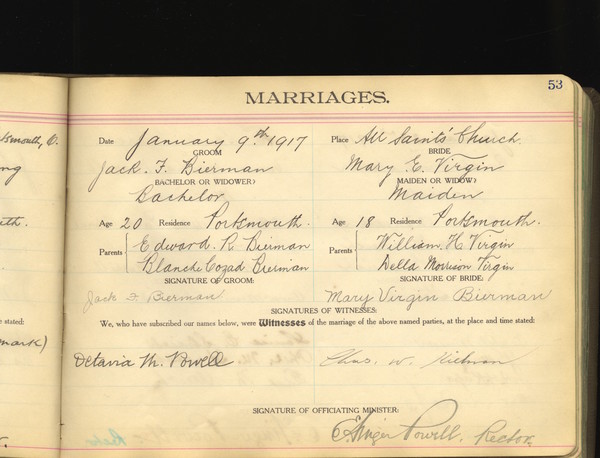 53
MARRIAGES.
Date January 9.th 1917 Place All Saints' Church.
GROOM BRIDE
Jack. F. Bierman Mary E. Virgin
BACHELOR OR WIDOWER? MAIDEN OR WIDOW?
Bachelor Maiden
Age 20 Residence Portsmouth. Age 18 Residence Portsmouth.
Parents Edward. R. Bierman Parents William. H. Virgin
Blanche Cozad Bierman Della Morrison Virgin
SIGNATURE OF GROOM: SIGNATURE OF BRIDE:
Jack F. Bierman Mary Virgin Bierman
SIGNATURES OF WITNESSES:
We, who have subscribed our names below, were Witnesses of the marriage of the above named parties, at the place and time stated:
Octavia M. Powell Chas. W.
SIGNATURE OF OFFICIATING MINISTER:
Powell, Rector.